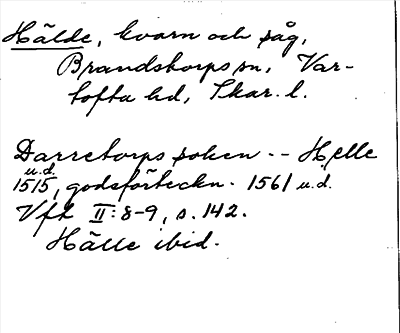 Hälde, kvarn och såg,
Brandstorps sn, Var-
tofta hd, Skar. l.
Darretorps soken -- Helle
u.d.
1515, godsförteckn. 1561 u.d.
Vft II:8-9, s. 142.
Hälle ibid.